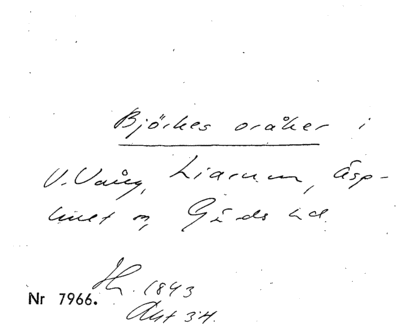 Björkes oråker i
V. Vång, Liarum, Äsp-
hult o, Gärds hd.
H. 1843
Nr 7966.
Akt 34.